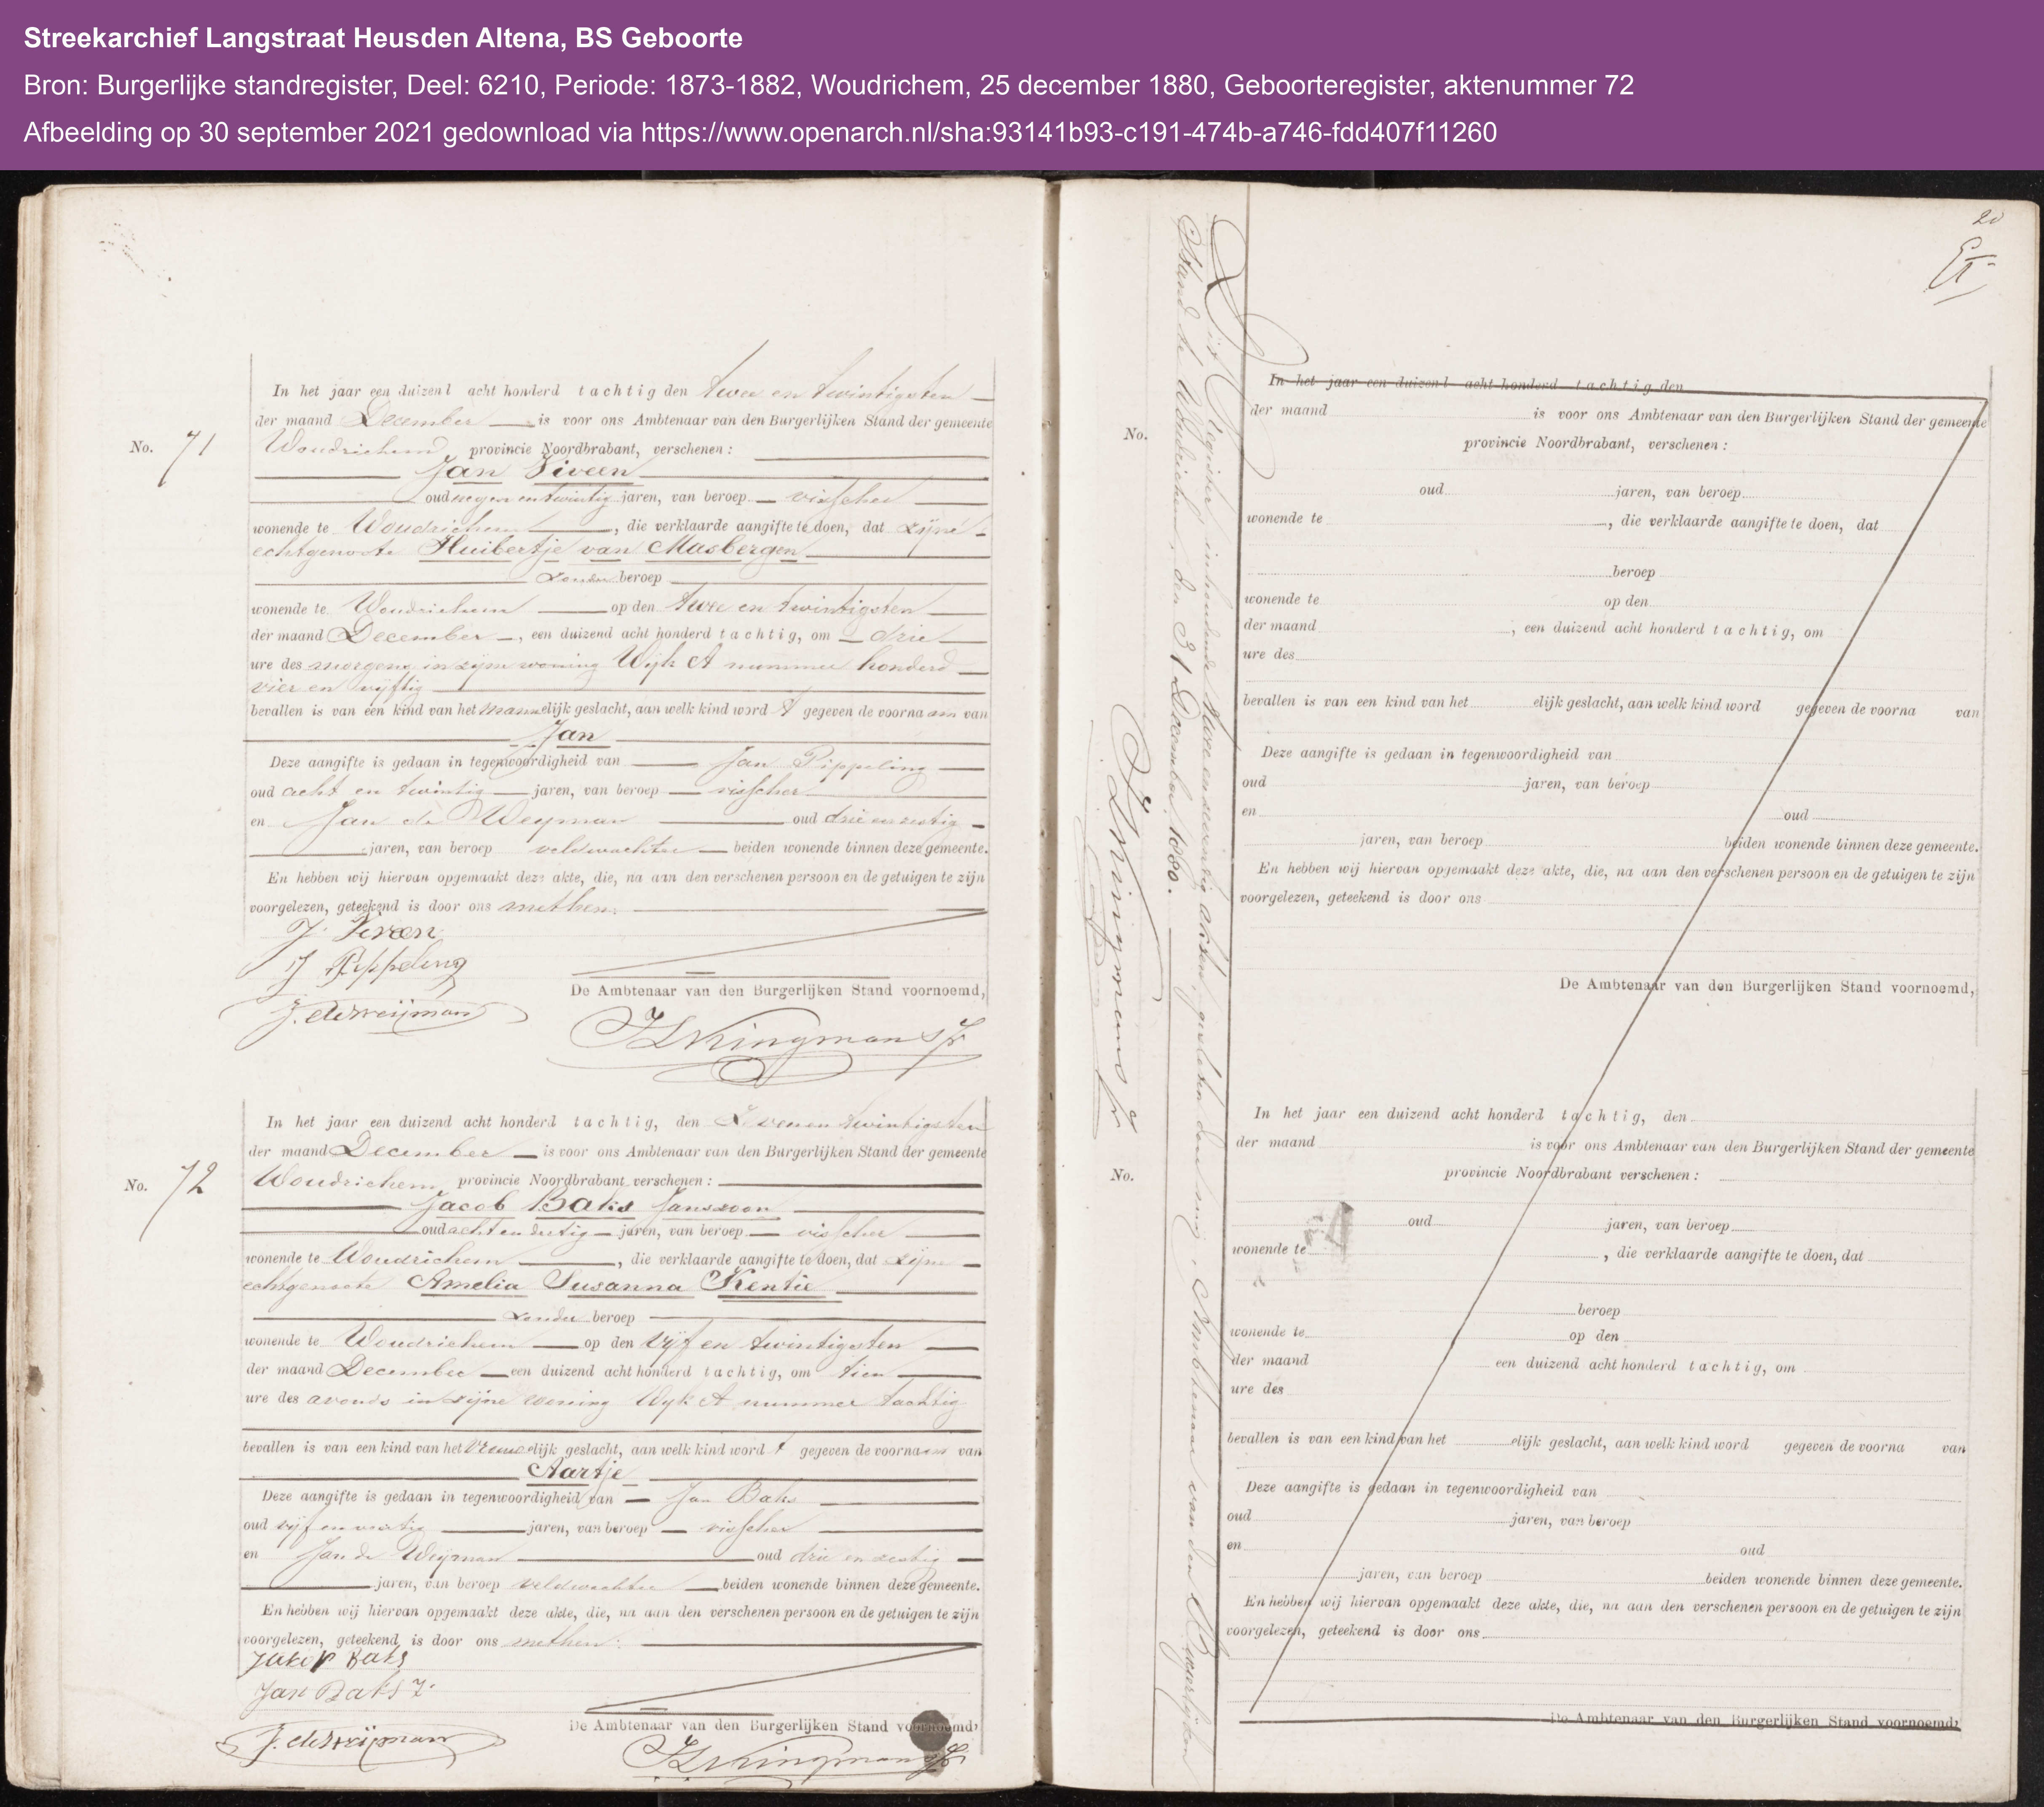 Streekarchief Langstraat Heusden Altena, BS Geboorte
Bron: Burgerlijke standregister, Deel: 6210, Periode: 1873-1882, Woudrichem, 25 december 1880, Geboorteregister, aktenummer 72
Afbeelding op 30 september 2021 gedownload via https://www.openarch.nl/sha:93141b93-c191-474b-a746-fdd407f11260
In het jaar een duizend acht honderd tachtig den twee en twintigsten
der maand December is voor ons Ambtenaar van den Burgerlijken Stand der gemeente
No. 71 Woudrichem provincie Noordbrabant, verschenen:
Jan Viveen
oud negen en twintig jaren, van beroep visscher
wonende te Woudrichem, die verklaarde aangifte te doen, dat zijne
echtgenoote Huibertje van Masbergen
zonder beroep
wonende te Woudrichem op den twee en twintigsten
der maand December, een duizend acht honderd tachtig, om drie
ure des morgens in zijne woning Wijk A nummer honderd
vier en vijftig
bevallen is van een kind van het mannelijk geslacht, aan welk kind word t gegeven de voornaam van
Jan
Deze aangifte is gedaan in tegenwoordigheid van Jan Pippeling
oud acht en twintig jaren, van beroep visscher
en Jan de Weyman oud drie en zestig
jaren, van beroep veldwachter beiden wonende binnen deze gemeente.
En hebben wij hiervan opgemaakt deze akte, die, na aan den verschenen persoon en de getuigen te zijn
voorgelezen, geteekend is door ons met hen.
J. Viveen
J Pippeling
De Ambtenaar van den Burgerlijken Stand voornoemd,
J. de Weijman
In het jaar een duizend acht honderd tachtig, den Zeven en twintigsten
der maand December is voor ons Ambtenaar van den Burgerlijken Stand der gemeente
No. 72 Woudrichem provincie Noordbrabant verschenen:
Jacob Baks Janszoon
oud acht en dertig jaren, van beroep visscher
wonende te Woudrichem, die verklaarde aangifte te doen, dat zijne
echtgenoote Amelia Susanna Kentie
zonder beroep
wonende te Woudrichem op den vijf en twintigsten
der maand December een duizend acht honderd tachtig, om tien
ure des avonds in zijne woning Wijk A nummer tachtig
bevallen is van een kind van het vrouwelijk geslacht, aan welk kind word t gegeven de voornaam van
Aartje
Deze aangifte is gedaan in tegenwoordigheid van Jan Baks
oud vijf en veertig jaren, van beroep visscher
en Jan de Weijman oud drie en zestig
jaren, van beroep veldwachter beiden wonende binnen deze gemeente.
En hebben wij hiervan opgemaakt deze akte, die, na aan den verschenen persoon en de getuigen te zijn
voorgelezen, geteekend is door ons met hen.
Jakop Baks
Jan Baks
De Ambtenaar van den Burgerlijken Stand voornoemd,
J. de Weijman
20
Dit Register inhoudende twee en zeventig akten, gesloten door mij, Ambtenaar van den Burgerlijken
Stand te Woudrichem, den 31 December 1880.
In het jaar een duizend acht honderd tachtig den
der maand is voor ons Ambtenaar van den Burgerlijken Stand der gemeente
No. provincie Noordbrabant, verschenen:
oud jaren, van beroep
wonende te , die verklaarde aangifte te doen, dat
beroep
wonende te op den
der maand , een duizend acht honderd tachtig, om
ure des
bevallen is van een kind van het elijk geslacht, aan welk kind word gegeven de voorna van
Deze aangifte is gedaan in tegenwoordigheid van
oud jaren, van beroep
en oud
jaren, van beroep beiden wonende binnen deze gemeente.
En hebben wij hiervan opgemaakt deze akte, die, na aan den verschenen persoon en de getuigen te zijn
voorgelezen, geteekend is door ons
De Ambtenaar van den Burgerlijken Stand voornoemd,
In het jaar een duizend acht honderd tachtig, den
der maand is voor ons Ambtenaar van den Burgerlijken Stand der gemeente
No. provincie Noordbrabant verschenen:
oud jaren, van beroep
wonende te , die verklaarde aangifte te doen, dat
beroep
wonende te op den
der maand een duizend acht honderd tachtig, om
ure des
bevallen is van een kind van het elijk geslacht, aan welk kind word gegeven de voorna van
Deze aangifte is gedaan in tegenwoordigheid van
oud jaren, van beroep
en oud
jaren, van beroep beiden wonende binnen deze gemeente.
En hebben wij hiervan opgemaakt deze akte, die, na aan den verschenen persoon en de getuigen te zijn
voorgelezen, geteekend is door ons
De Ambtenaar van den Burgerlijken Stand voornoemd,